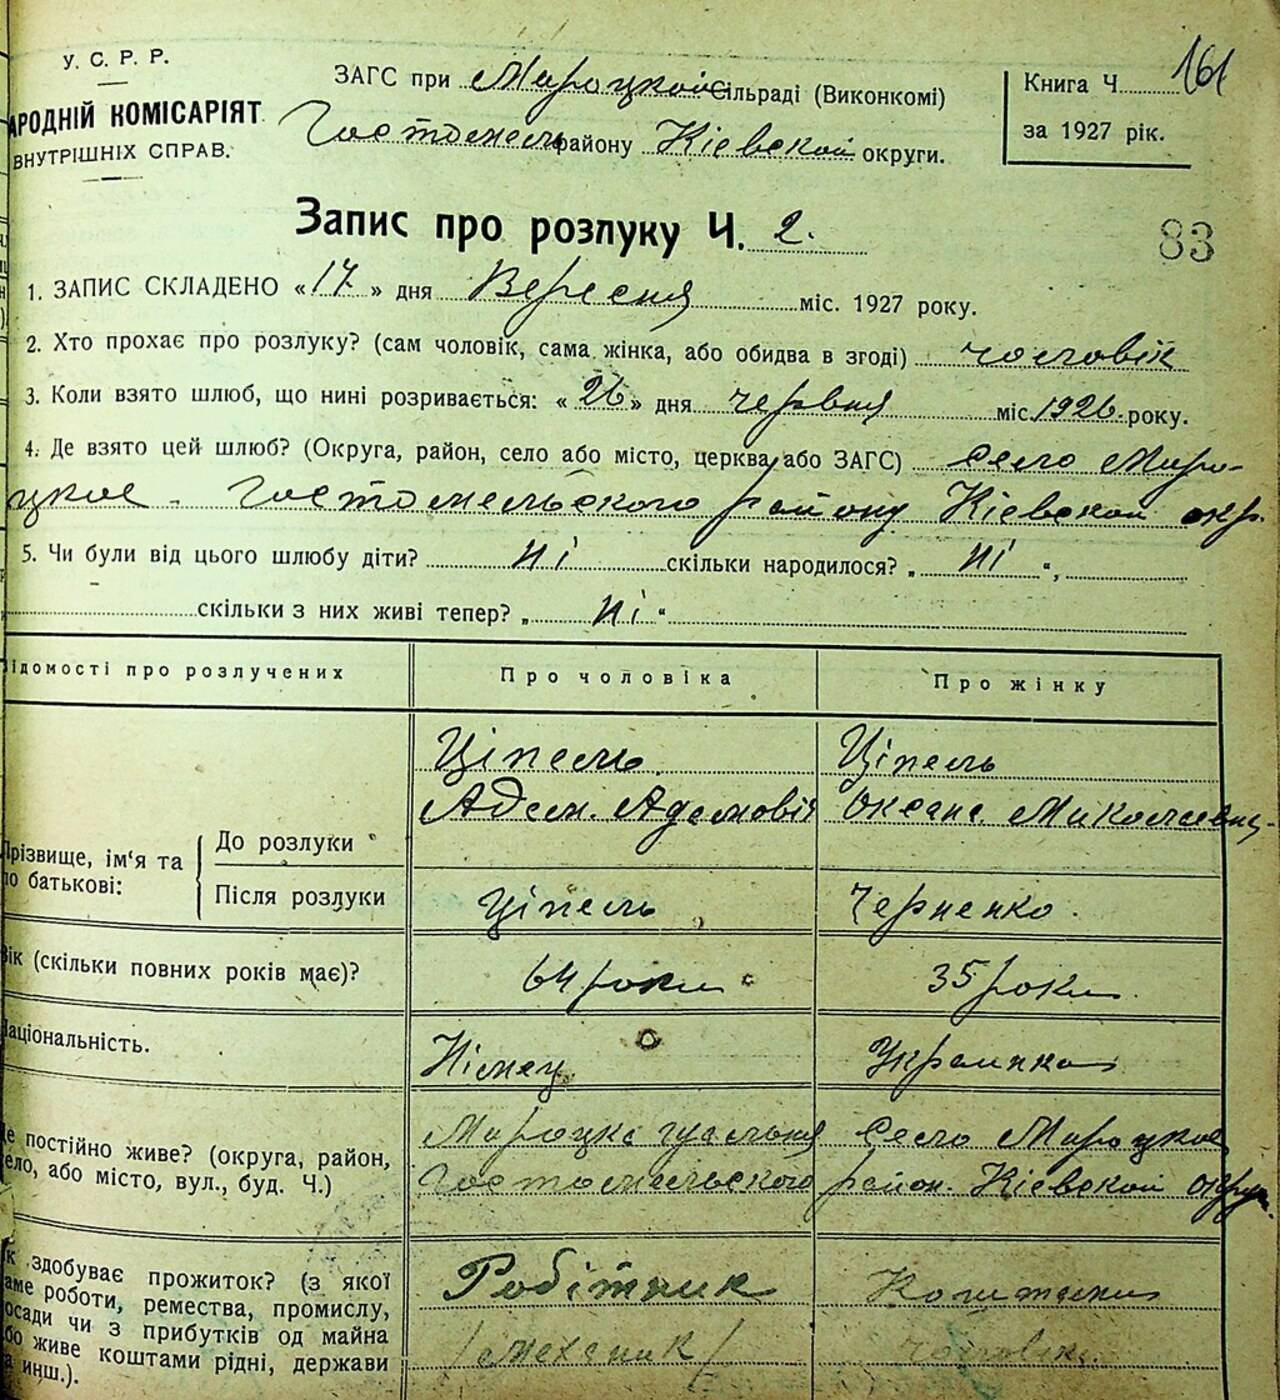 У. С. Р. Р.
АРОДНІЙ КОМІСАРІЯТ
ВНУТРІШНІХ СПРАВ.
ЗАГС при Мироцкой Сільраді (Виконкомі)
Гостомель району Кіевской округи.
Книга Ч. 161
за 1927 рік.
83
Запис про розлуку Ч. 2.
1. ЗАПИС СКЛАДЕНО «17» дня Вересня міс. 1927 року.
2. Хто прохає про розлуку? (сам чоловік, сама жінка, або обидва в згоді) чоловік
3. Коли взято шлюб, що нині розривається: «26» дня червня міс. 1926. року.
4. Де взято цей шлюб? (Округа, район, село або місто, церква або ЗАГС) село Миро-
цкое - Гостомельского району Кіевской окр.
5. Чи були від цього шлюбу діти? ні скільки народилося? „ ні “,
скільки з них живі тепер? „ ні “
ідомості про розлучених
Про чоловіка
Про жінку
Ціпель
Ціпель
Адам. Адамовіч
Оксана. Миколаевна-
різвище, ім‘я та
по батькові:
До розлуки
Після розлуки
Ціпель
Черненко.
ік (скільки повних років має)?
64 роки
35 роки
аціональність.
Німец
Украинка
е постійно живе? (округа, район,
ело, або місто, вул., буд. Ч.)
Мироцка
село Мироцкое
Гостомельского район. Кіевской округ.
к здобуває прожиток? (з якої
аме роботи, ремества, промислу,
осади чи з прибутків од майна
бо живе коштами рідні, держави
а инш.).
Робітник
/механик/
Коштами
чоловіка.